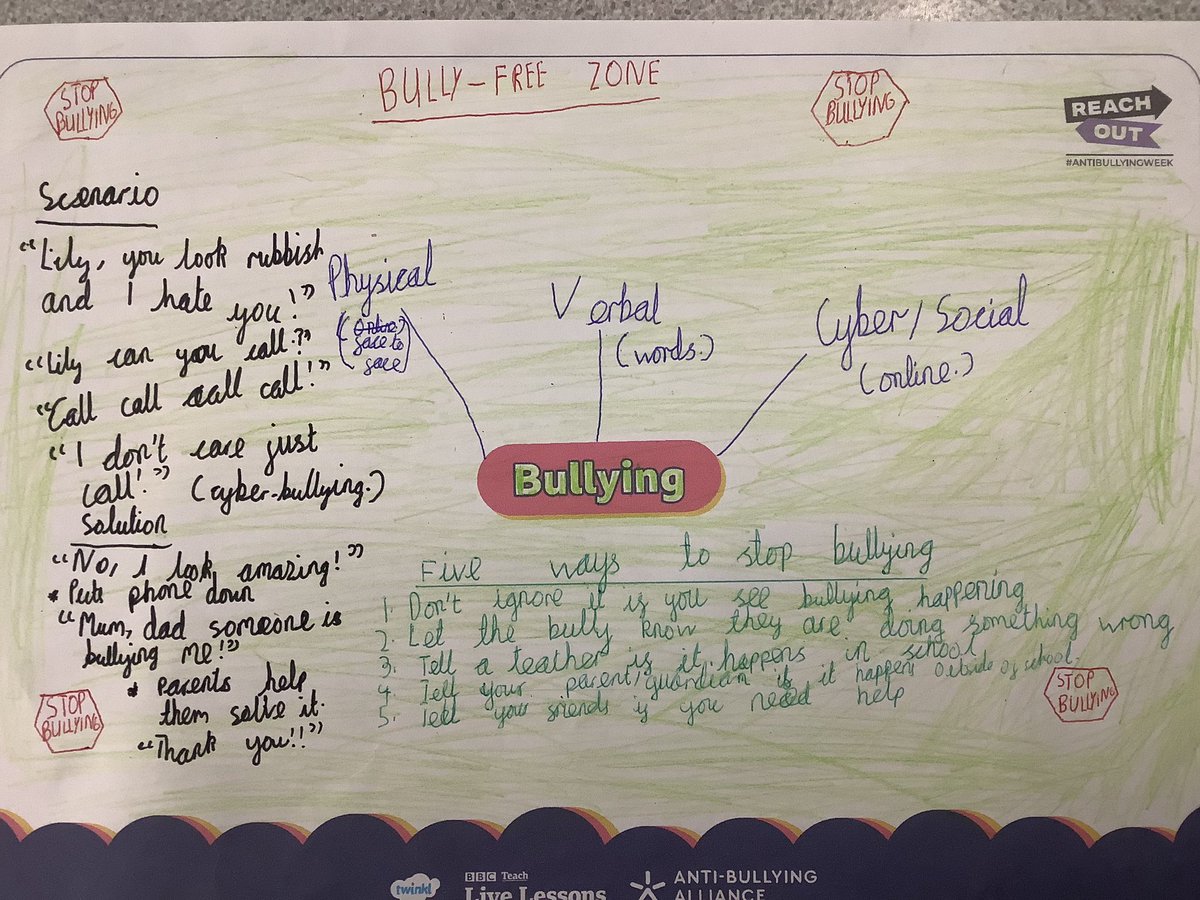 BULLY-FREE ZONE
STOP
BULLYING
STOP
BULLYING
REACH
OUT
#ANTIBULLYINGWEEK
Scenario
"Lily, you look rubbish
and I hate you!"
"Lily can you call?"
"Call call call call!"
"I don't care just
call!" (cyber-bullying.)
Solution
"No, I look amazing!"
* Puts phone down
"Mum, dad someone is
bullying me!"
* Parents help
them solve it.
"Thank you!!"
Physical
(Online)
face to
face
Verbal
(words.)
Cyber/Social
(online.)
Bullying
Five ways to stop bullying
1. Don't ignore it if you see bullying happening
2. Let the bully know they are doing something wrong
3. Tell a teather if it happens in school
4. Tell your parent/guardian if it happens outside of school.
5. Tell your friends if you need help
STOP
BULLYING
STOP
BULLYING
twinkl
BBC Teach
Live Lessons
ANTI-BULLYING
ALLIANCE